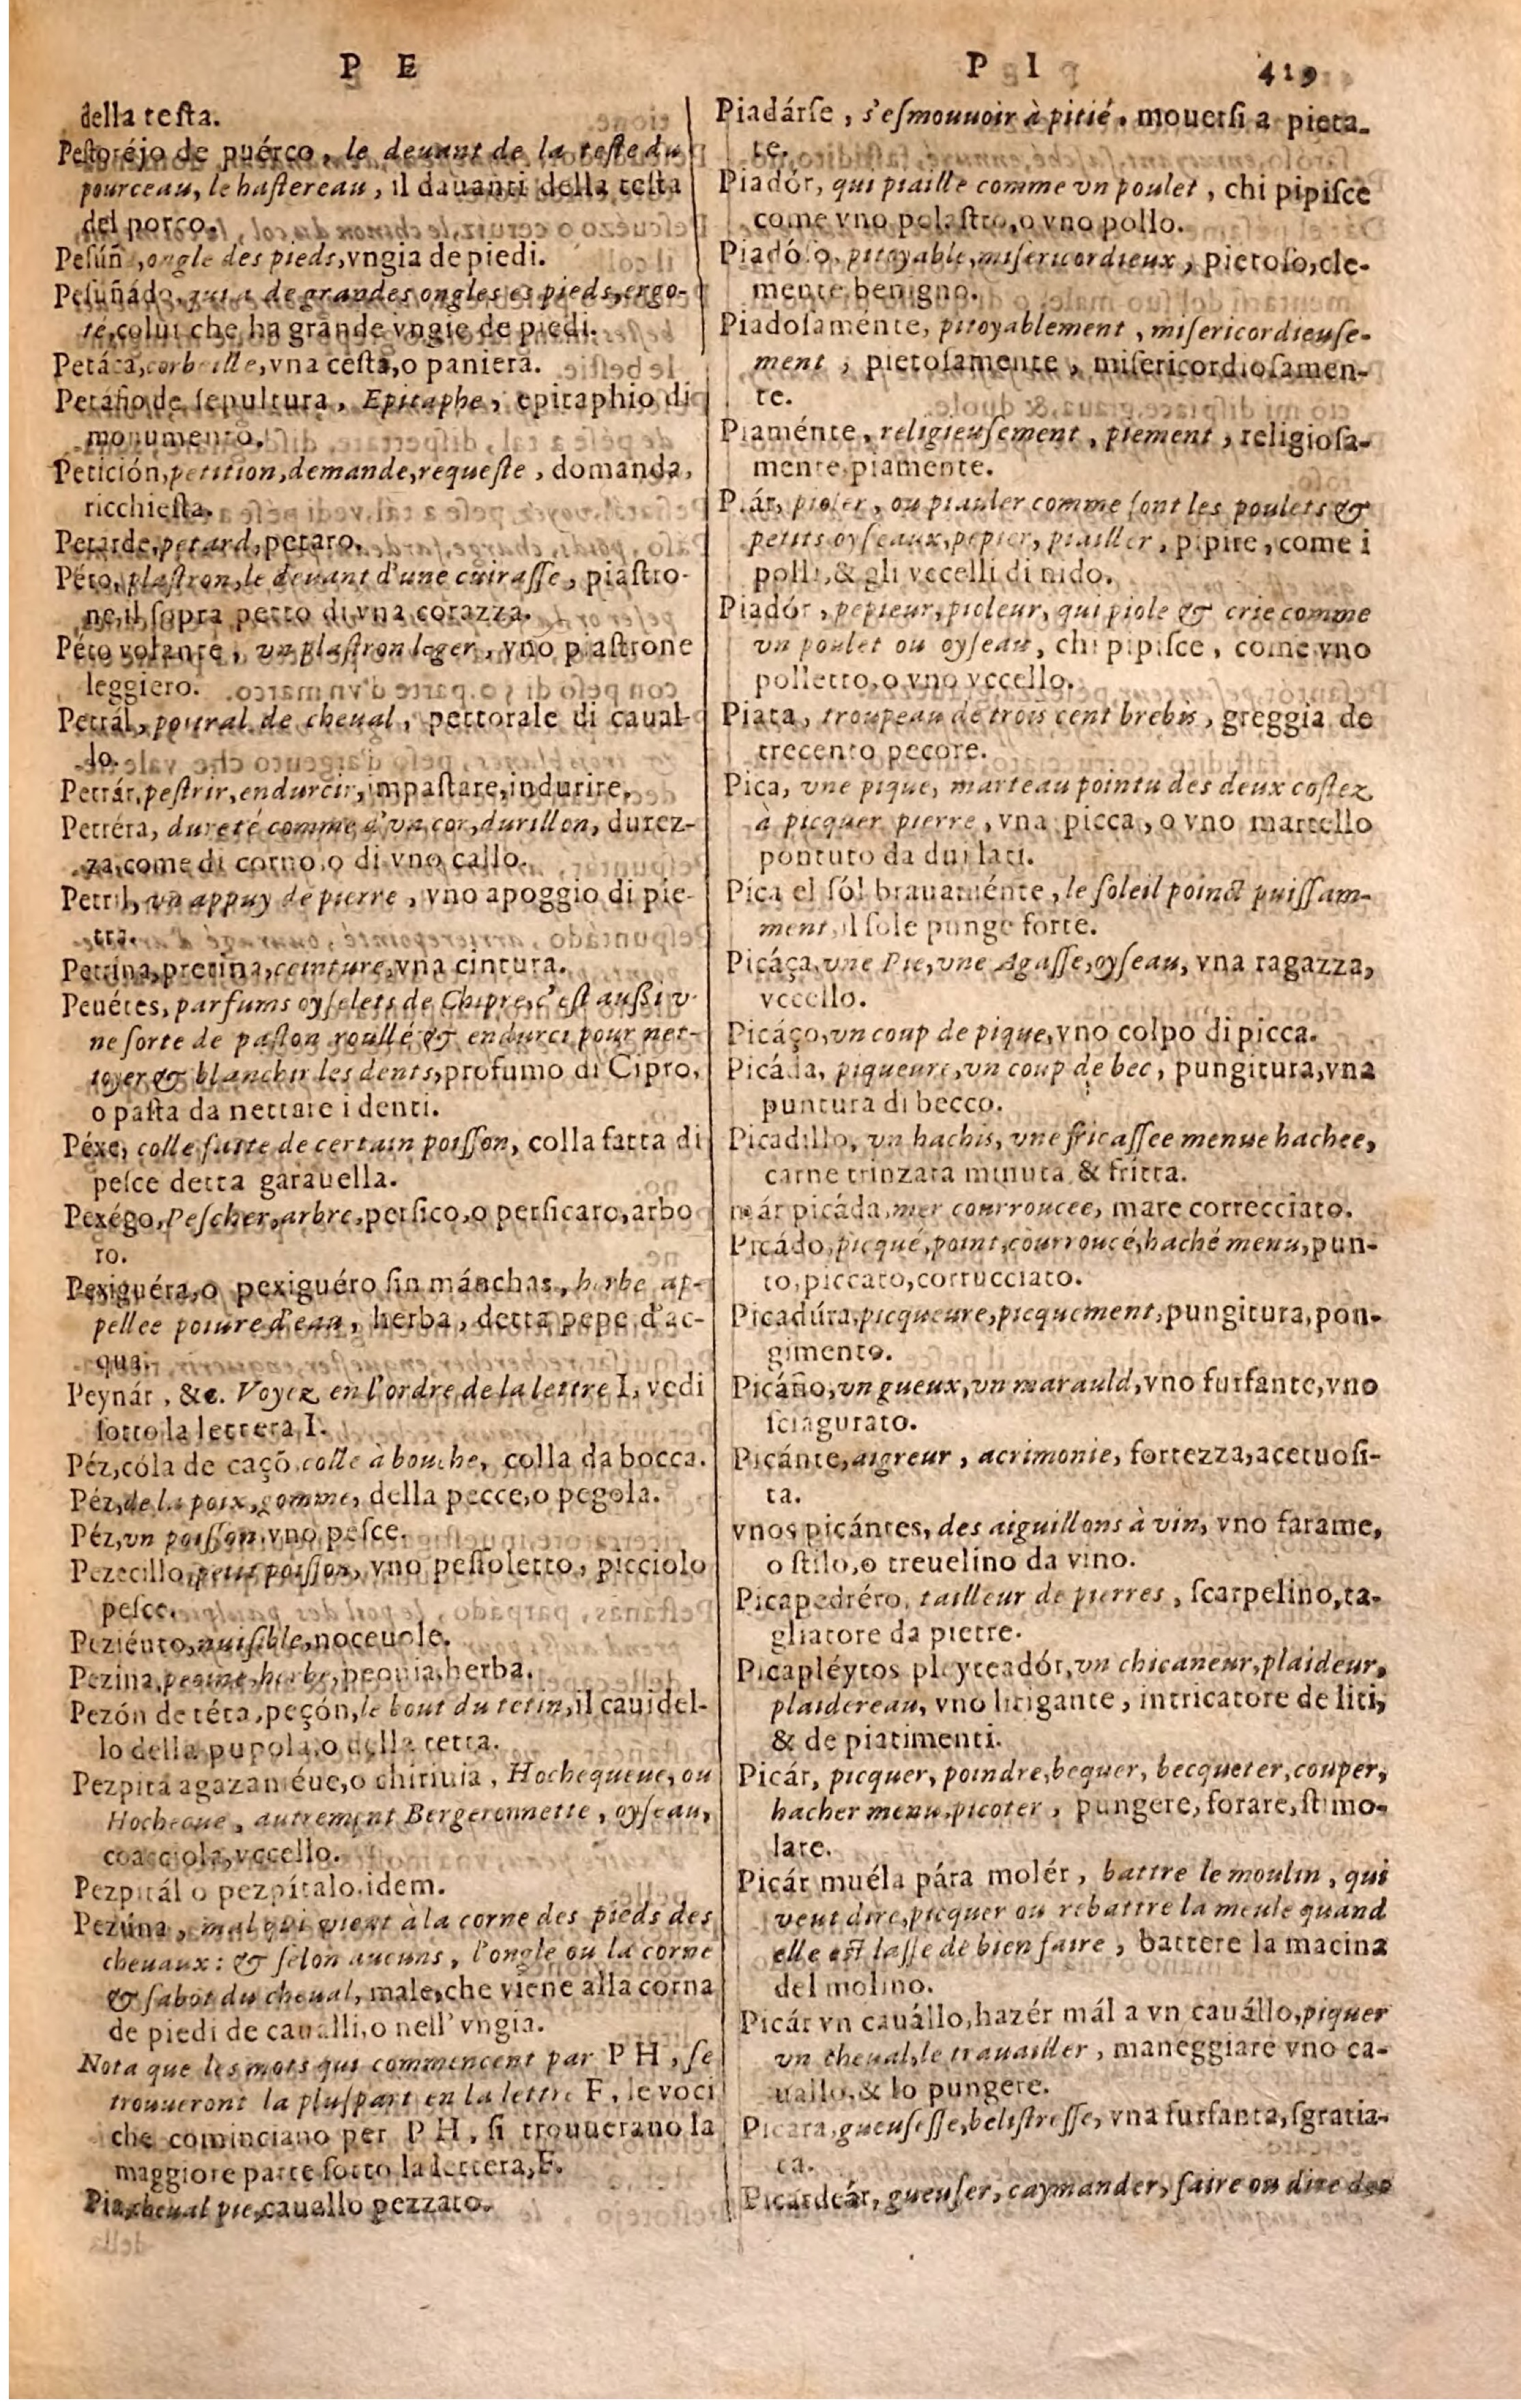 P E
della testa.
Pestoréjo de puérco, le deuant de la teste du
pourceau, le hastereau, il dauanti della testa
del porco.
Pesúñ, ongle des pieds, vngia de piedi.
Pesuñádo, qui a de grandes ongles es pieds, ergo-
té, colui che ha grande vngie de piedi.
Petáca, corbeille, vna cesta, o paniera.
Petáfio de sepultura, Epitaphe, epitaphio di
monumento.
Petición, petition, demande, requeste, domanda,
ricchiesta.
Petarde, petard, petaro.
Péto, plastron, le deuant d'une cuirasse, piastro-
ne, il sopra petto di vna corazza.
Péto volante, vn plastron leger, vno piastrone
leggiero.
Petrál, poitral de cheual, pettorale di caual-
lo.
Petrár, pestrir, endurcir, impastare, indurire.
Petréra, dureté comme d'vn cor, durillon, durez-
za, come di corno, o di vno callo.
Petril, vn appuy de pierre, vno apoggio di pie-
tra.
Petrina, pretina, ceinture, vna cintura.
Peuétes, parfums oyselets de Chipre, c'est aussi v-
ne sorte de paston roullé & endurci pour net-
toyer & blanchir les dents, profumo di Cipro,
o pasta da nettare i denti.
Péxe, colle faite de certain poisson, colla fatta di
pesce detta garauella.
Pexégo, Pescher, arbre, persico, o persicaro, arbo
ro.
Pexiguéra, o pexiguéro sin mánchas, herbe ap-
pellee poiure d'eau, herba, detta pepe d'ac-
qua.
Peynár, &c. Voyez en l'ordre de la lettre I, vedi
sotto la lettera I.
Péz, cóla de caçõ, colle à bouche, colla da bocca.
Péz, de la poix, gomme, della pecce, o pegola.
Péz, vn poisson, vno pesce.
Pezecillo, petit poisson, vno pessoletto, picciolo
pesce.
Peziénto, nuisible, noceuole.
Pezina, peoine, herbe, peonia, herba.
Pezón de téta, peçón, le bout du tetin, il cauidel-
lo della pupola, o della tetta.
Pezpita agazaniéue, o chiriuia, Hochequeue, ou
Hochecue, autrement Bergeronnette, oyseau,
coacciola, vccello.
Pezpitál o pezpítalo, idem.
Pezúna, mal qui vient à la corne des pieds des
cheuaux: & selon aucuns, l'ongle ou la corne
& sabot du cheual, male, che viene alla corna
de piedi de caualli, o nell' vngia.
Nota que les mots qui commencent par P H, se
trouueront la pluspart en la lettre F, le voci
che cominciano per P H, si trouuerano la
maggiore parte sotto la lettera, F.
Pia, cheual pie, cauallo pezzato.
P I 419
Piadárse, s'esmouuoir à pitié, mouersi a pieta-
te.
Piadór, qui piaille comme vn poulet, chi pipisce
come vno polastro, o vno pollo.
Piadóso, pitoyable, misericordieux, pietoso, cle-
mente benigno.
Piadosaménte, pitoyablement, misericordieuse-
ment, pietosamente, misericordiosamen-
te.
Piaménte, religieusement, piement, religiosa-
mente, piamente.
Piár, pioler, ou piauler comme font les poulets &
petits oyseaux, pepier, piailler, pipire, come i
polli, & gli vccelli di nido.
Piadór, pepieur, pioleur, qui piole & crie comme
vn poulet ou oyseau, chi pipisce, come vno
polletto, o vno vccello.
Piara, troupeau de trois cent brebis, greggia de
trecento pecore.
Pica, vne pique, marteau pointu des deux costez
à picquer pierre, vna picca, o vno martello
pontuto da dui lati.
Pica el sól brauaménte, le soleil poinct puissam-
ment, il sole punge forte.
Picáça, vne Pie, vne Agasse, oyseau, vna ragazza,
vccello.
Picáço, vn coup de pique, vno colpo di picca.
Picáda, piqueure, vn coup de bec, pungitura, vna
puntura di becco.
Picadillo, vn hachis, vne fricassee menue hachee,
carne trinzata minuta & fritta.
már picáda, mer courroucee, mare correcciato.
Picádo, picqué, point, courroucé, haché menu, pun-
to, piccato, corrucciato.
Picadúra, picqueure, picquement, pungitura, pon-
gimento.
Picáño, vn gueux, vn marauld, vno furfante, vno
sciagurato.
Picánte, aigreur, acrimonie, fortezza, acetuosi-
ta.
vnos picántes, des aiguillons à vin, vno farame,
o stilo, o treuelino da vino.
Picapedréro, tailleur de pierres, scarpelino, ta-
gliatore da pietre.
Picapléytos pleyteadór, vn chicaneur, plaideur,
plaidereau, vno litigante, intricatore de liti,
& de piatimenti.
Picár, picquer, poindre, bequer, becqueter, couper,
hacher menu, picoter, pungere, forare, stimo-
lare.
Picár muéla pára molér, battre le moulin, qui
veut dire, picquer ou rebattre la meule quand
elle est lasse de bien faire, battere la macina
del molino.
Picár vn cauállo, hazér mál a vn cauállo, piquer
vn cheual, le trauailler, maneggiare vno ca-
uallo, & lo pungere.
Picara, gueusesse, belistresse, vna furfanta, sgratia-
ta.
Picardeár, gueuser, caymander, faire ou dire des